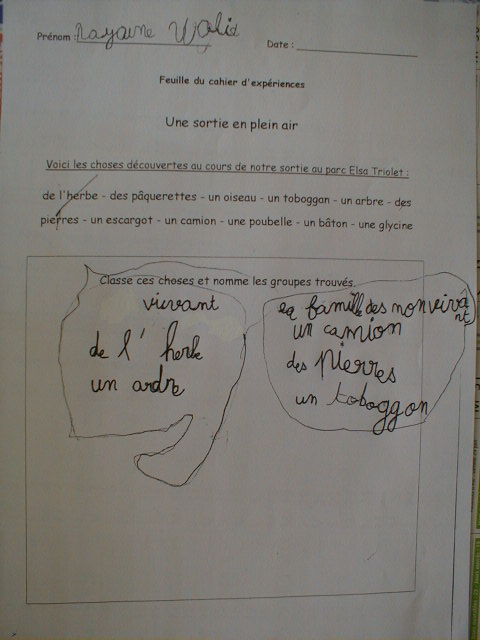 Prénom : Rayane Walid
Date :
Feuille du cahier d'expériences
Une sortie en plein air
Voici les choses découvertes au cours de notre sortie au parc Elsa Triolet :
de l'herbe - des pâquerettes - un oiseau - un toboggan - un arbre - des
pierres - un escargot - un camion - une poubelle - un bâton - une glycine
Classe ces choses et nomme les groupes trouvés.
vivant
de l'herbe
un ardre
la famille des non vivant
un camion
des pierres
un toboggon